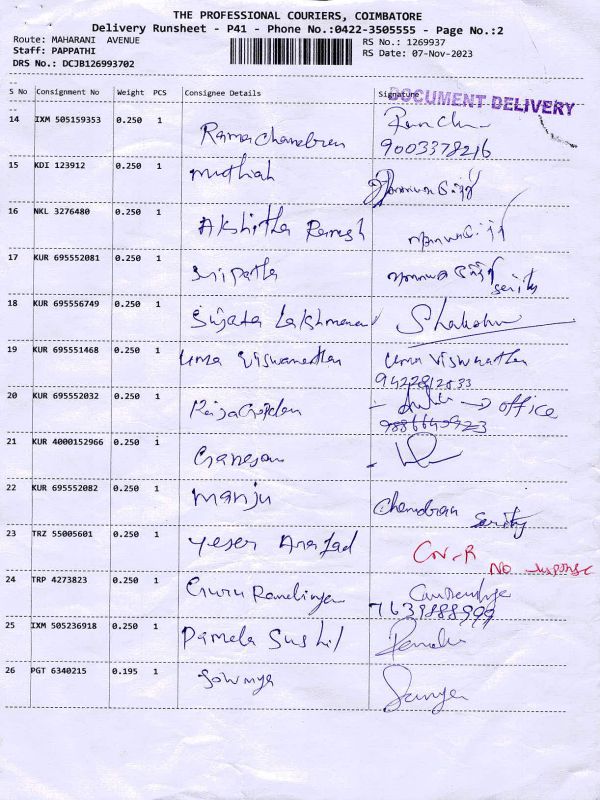 THE PROFESSIONAL COURIERS, COIMBATORE
Delivery Runsheet - P41 - Phone No.:0422-3505555 - Page No.:2
Route: MAHARANI AVENUE
RS No.: 1269937
Staff: PAPPATHI
RS Date: 07-Nov-2023
DRS No.: DCJB126993702
S No Consignment No Weight PCS Consignee Details Signature
DOCUMENT DELIVERY
14 IXM 505159353 0.250 1 Ramachandran
9003378216
15 KDI 123912 0.250 1 Muthiah
16 NKL 3276480 0.250 1 Akshitha Ramesh
17 KUR 695552081 0.250 1 Sripatha
18 KUR 695556749 0.250 1 Sujata Lakshmanan
19 KUR 695551468 0.250 1 Uma Viswanathan Uma Viswnathan
20 KUR 695552032 0.250 1 → office
21 KUR 4000152966 0.250 1 Ganesan
22 KUR 695552082 0.250 1 Manju Chandran
23 TRZ 55005601 0.250 1 Yeser Arafad
No response
24 TRP 4273823 0.250 1
7639888999
25 IXM 505236918 0.250 1 Pamela Sushil
26 PGT 6340215 0.195 1 Sowmya